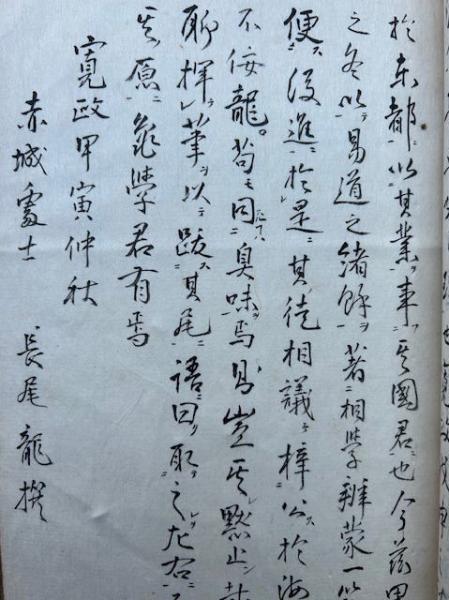 於東都以其業事其國君也今茲甲
之冬以易道之緒餘著相學辨蒙一
便後進於是其徒相議梓公於海
不佞龍苟同臭味焉則豈其默止
聊揮筆以跋其尾語曰取之左右
其原龜學君有焉
寛政甲寅仲秋
赤城處士 長尾龍撰